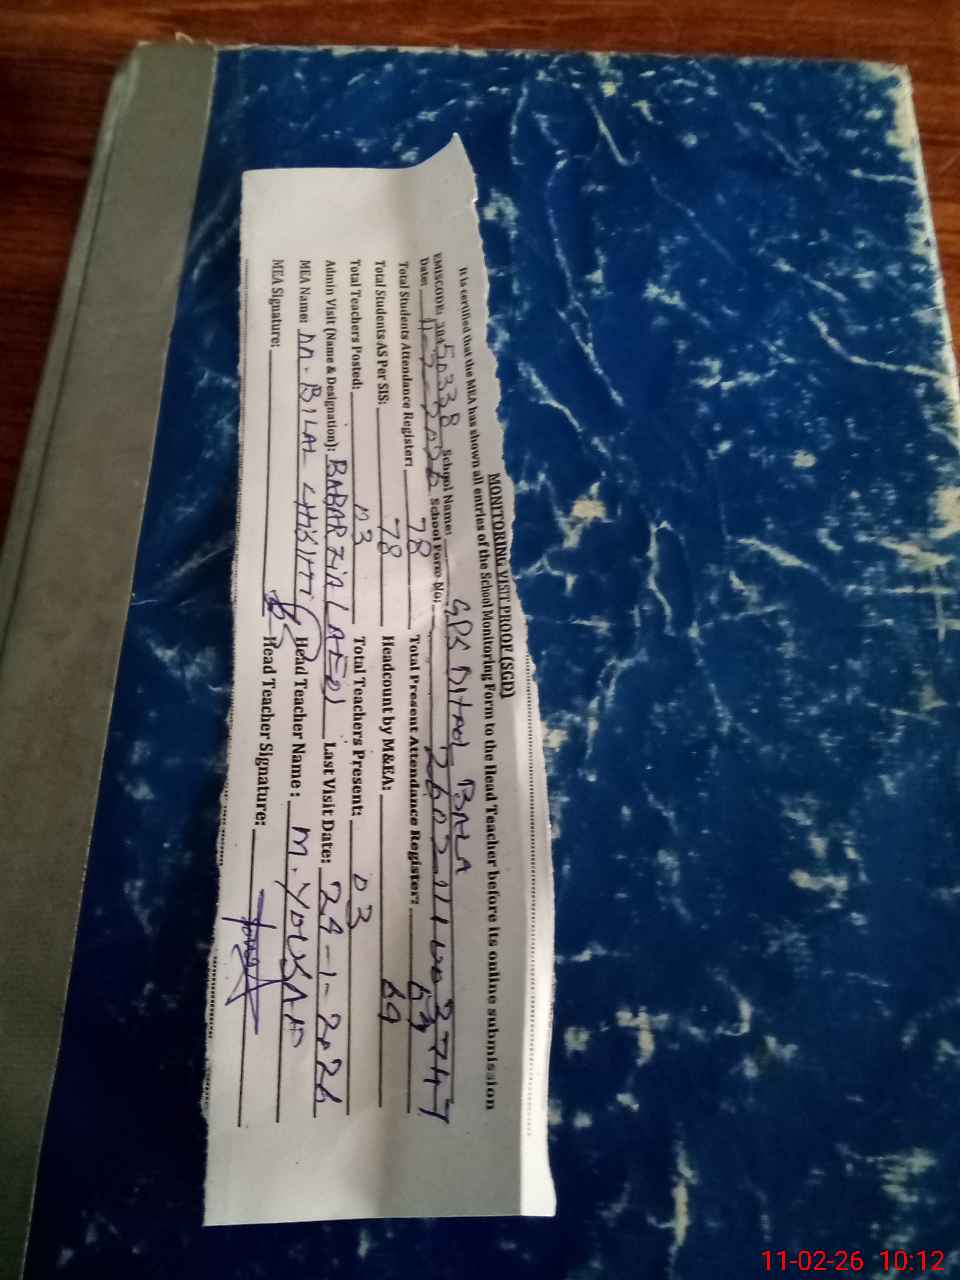 MONITORING VISIT PROOF (SGD)
It is certified that the MEA has shown all entries of the School Monitoring Form to the Head Teacher before its online submission
EMISCODE: 50338 School Name: GPS Ditad Bala
Date: 11-2-2026 School Form No:
Total Students Attendance Register: 78 Total Present Attendance Register: 69
Total Students AS Per SIS: 78 Headcount by M&EA: 69
Total Teachers Posted: 03 Total Teachers Present: 03
Admin Visit (Name & Designation): BABAR ZIA (AEO) Last Visit Date: 24-1-2026
MEA Name: M. BILAL CHISHTI Head Teacher Name: M. YOUSAF
MEA Signature: Head Teacher Signature:
11-02-26 10:12